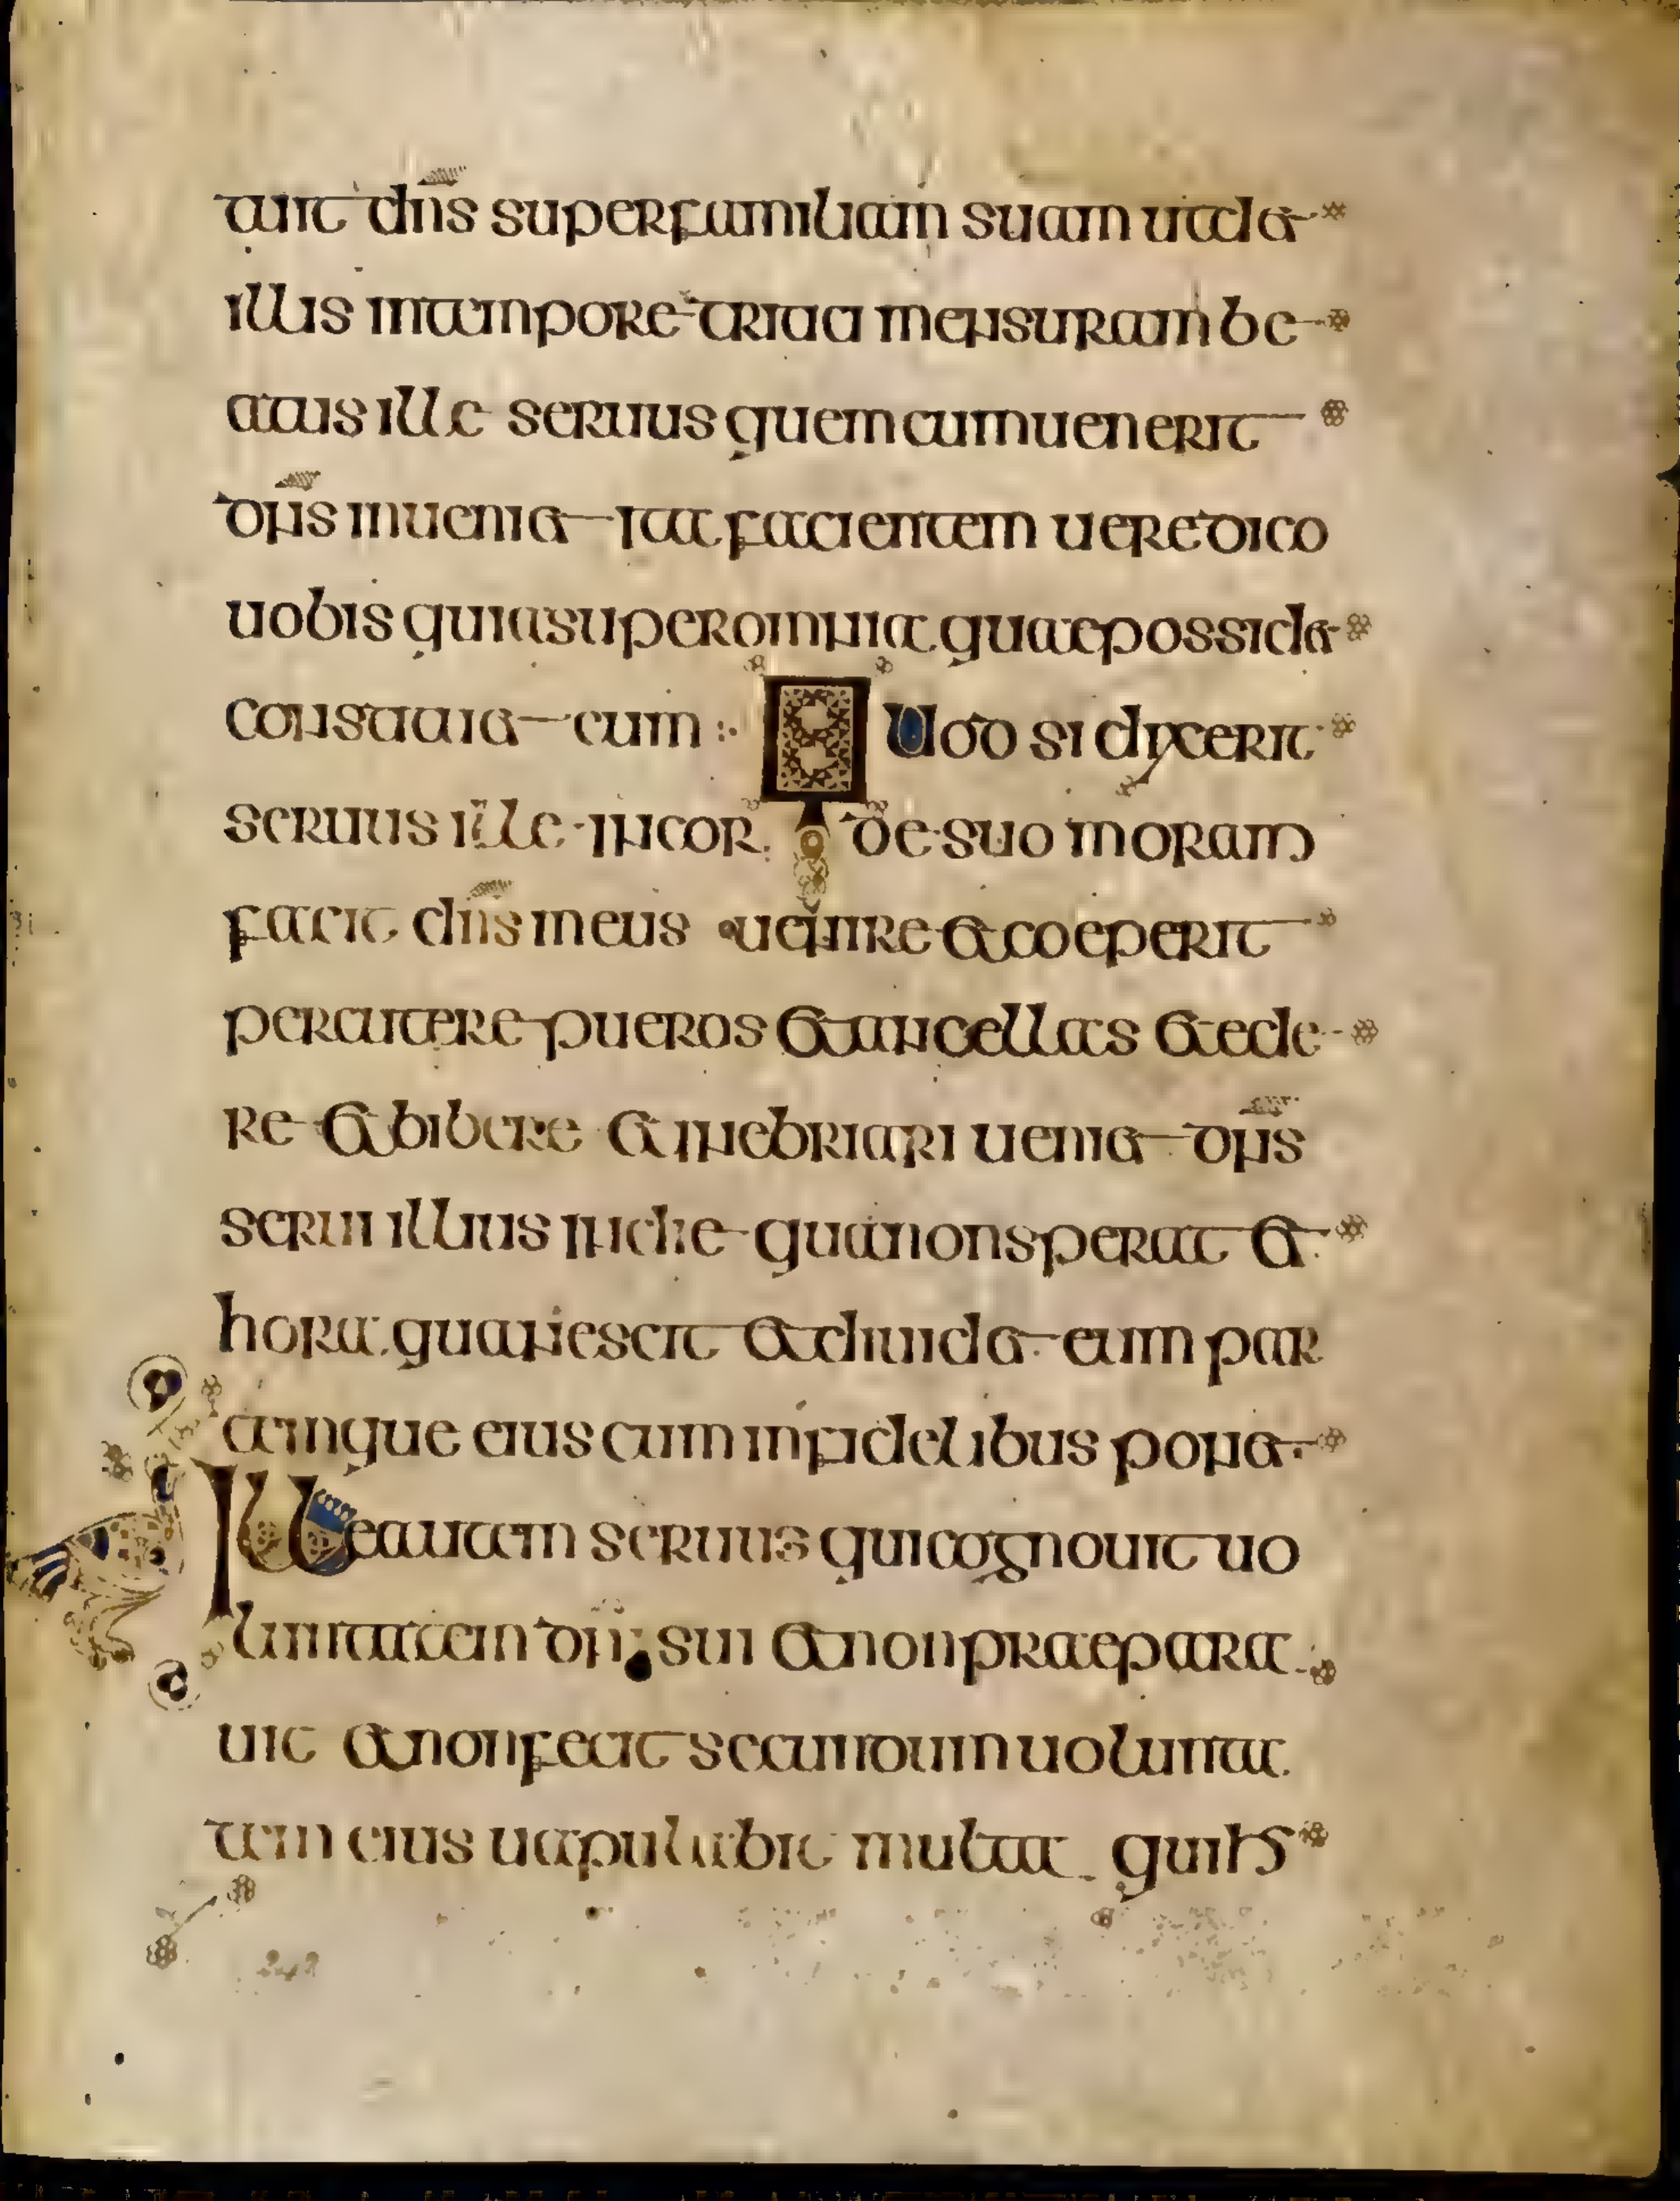 tuit dn̄s super familiam suam ut det
illis in tempore tritici mensuram be
atus ille seruus quem cum uenerit
dn̄s inueniet ita facientem uere dico
uobis quia super omnia quae possidet
constituiet eum :· Quod si dixerit
seruus ille in cor de suo moram
facit dn̄s meus uenire et coeperit
percutere pueros et ancellas et ede
re et bibere et inebriari ueniet dn̄s
serui illius in die qua non sperat et
hora qua nescit et diuidet eum par
temque eius cum infidelibus ponet
Ille autem seruus qui cognouit uo
luntatem dn̄i sui et non praepara
uit et non fecit secundum uolunta
tem eius uapulabit multa qui